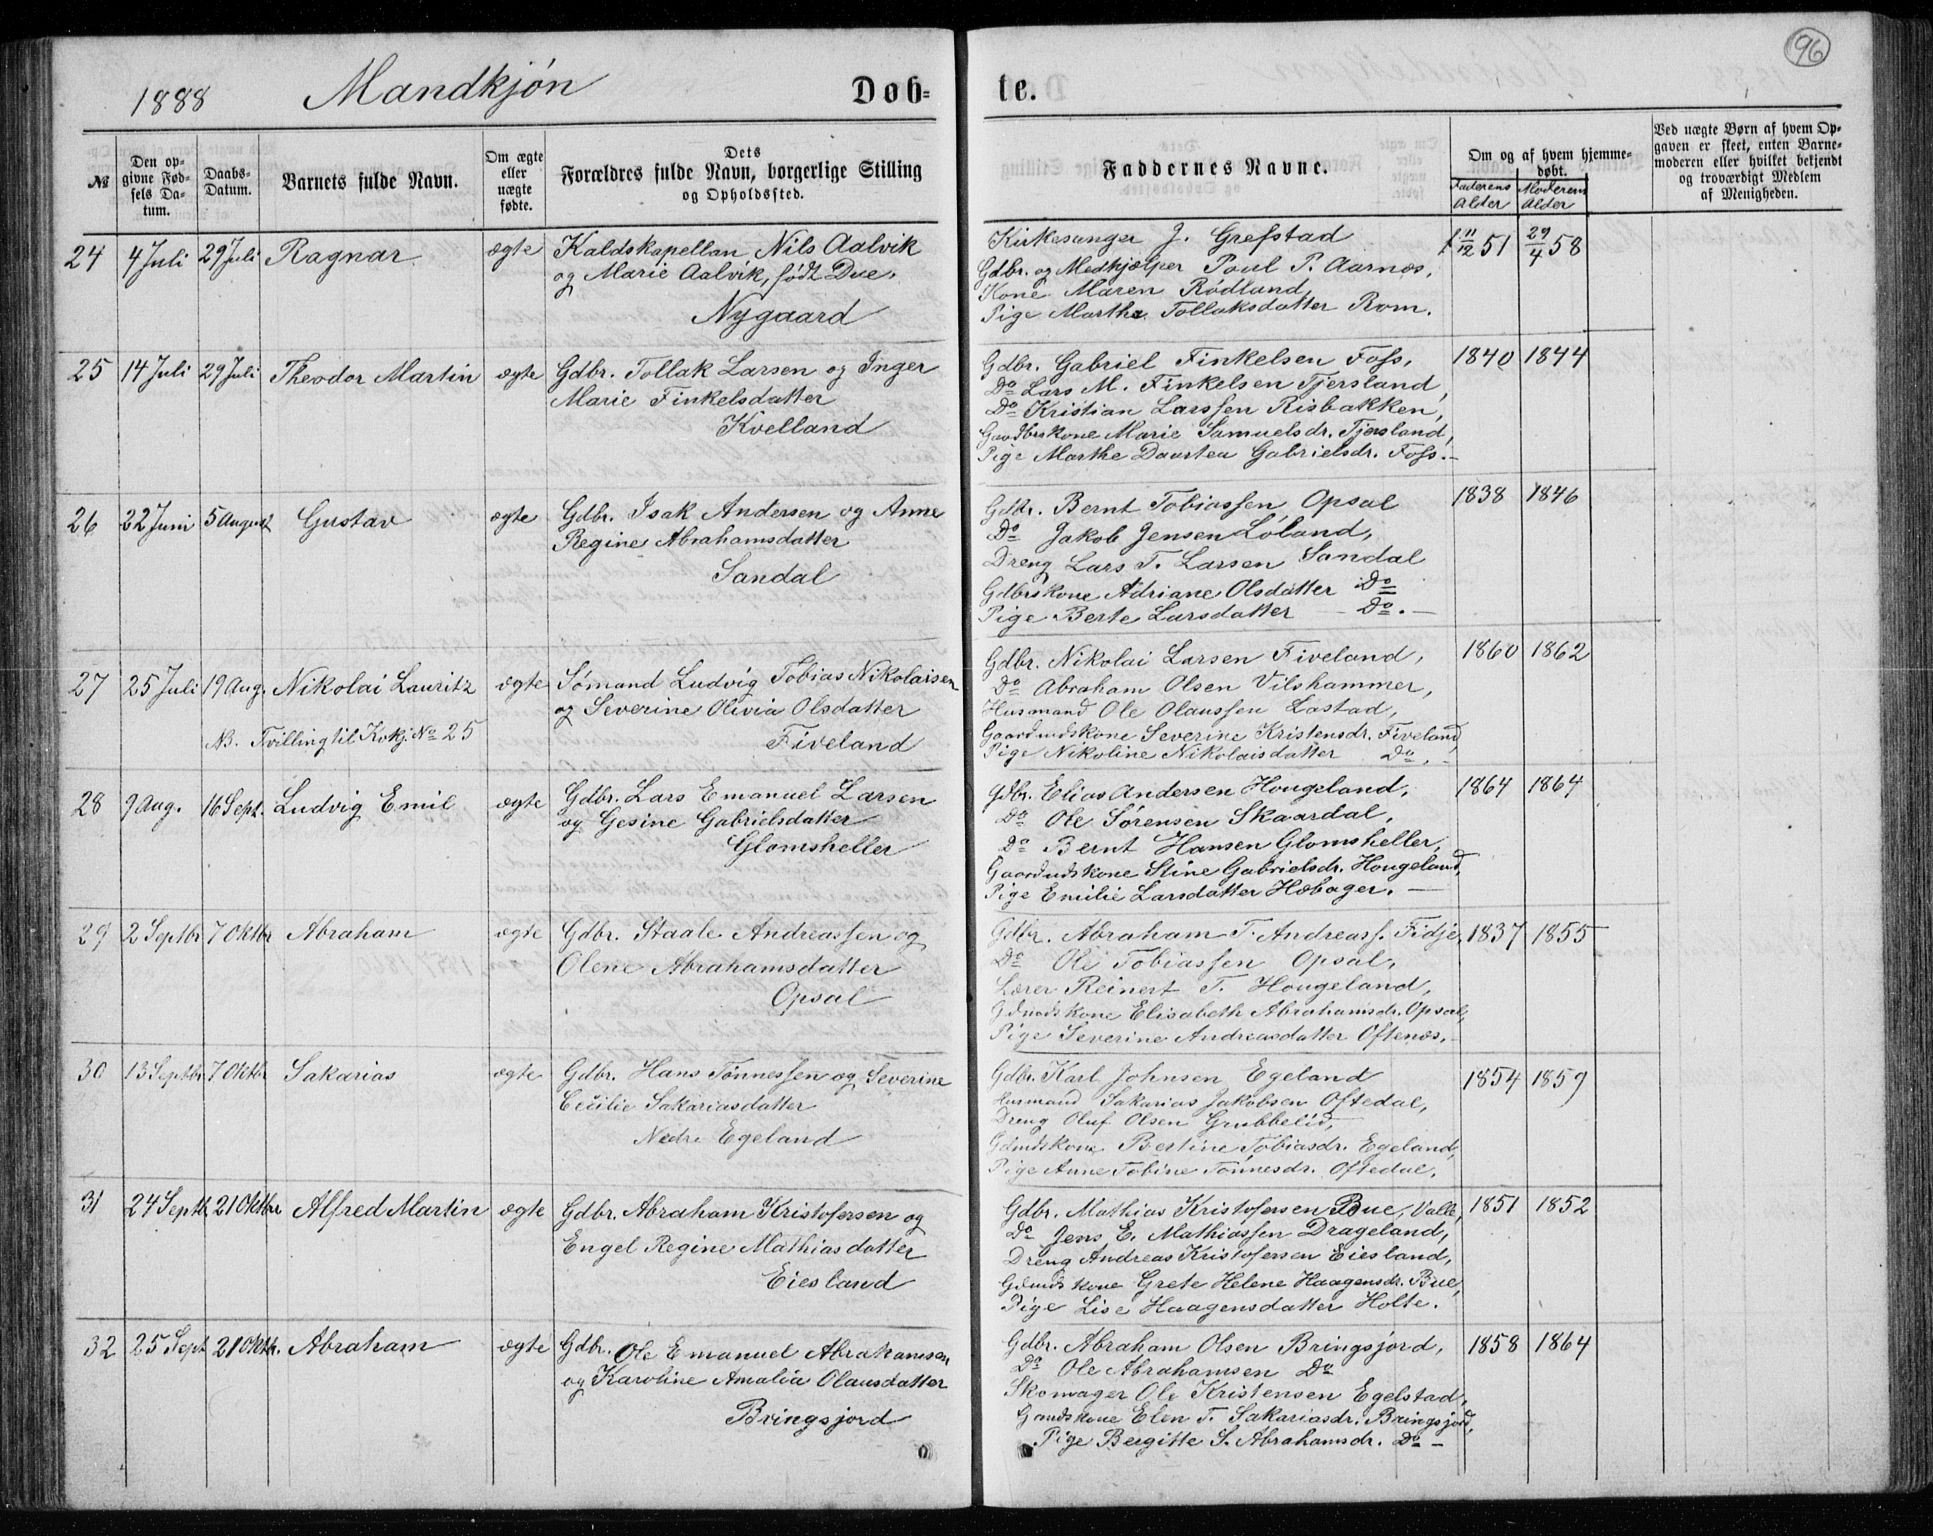 96
1888 Mandkjøn Døb-
te.
№
Den op-
givne Fød-
sels Da-
tum.
Daabs-
Datum.
Barnets fulde Navn.
Om ægte
eller
uægte
fødte.
Dets
Forældres fulde Navn, borgerlige Stilling
og Opholdssted.
Faddernes Navne.
Om og af hvem hjemme-
døbt.
Faderens
Alder
Moderens
Alder
Ved uægte Børn af hvem Op-
gaven er skeet, enten Barne-
moderen eller hvilket bekjendt
og troværdigt Medlem
af Menigheden.
24 4 Juli 29 Juli Ragnar ægte Kaldskapellan Nils Aalvik
og Marie Aalvik, født Due.
Nygaard
Kirkesanger J. Grefstad
Gdbr. og Medhjælper Poul P. Aarnæs,
Kone Maren Rødland
Pige Marthe Tollaksdatter Rom.
11/12 51 29/4 58
25 14 Juli 29 Juli Theodor Martin ægte Gdbr. Tollak Larsen og Inger
Marie Finkelsdatter
Kvelland
Gdbr. Gabriel Finkelsen Foss,
Do Lars M. Finkelsen Tjersland,
Do Kristian Larssen Risbakken,
Gaardbrskone Marie Samuelsdr. Tjersland,
Pige Marthe Daartea Gabrielsdr. Foss.
1840 1844
26 22 Juni 5 August Gustav ægte Gdbr. Isak Andersen og Anne
Regine Abrahamsdatter
Sandal
Gdbr. Bernt Tobiassen Opsal
Do Jakob Jensen Løland,
Dreng Lars T. Larsen Sandal
Gdbrskone Adriane Olsdatter Do
Pige Berte Larsdatter Do.
1838 1846
27 25 Juli 19 Aug. Nikolai Lauritz ægte Sømand Ludvig Tobias Nikolaisen
og Severine Olivia Olsdatter
Fiveland
NB. Tvilling til Kvkj. No 25
Gdbr. Nikolai Larsen Fiveland,
Do Abraham Olsen Vilshammer,
Husmand Ole Olaussen Lastad,
Gaardmdskone Severine Kristensdr. Fiveland,
Pige Nikoline Nikolaisdatter Do.
1860 1862
28 9 Aug. 16 Sept. Ludvig Emil ægte Gdbr. Lars Emanuel Larsen
og Gesine Gabrielsdatter
Glomsheller
Gdbr. Elias Andersen Hougeland,
Do Ole Sørensen Skaardal,
Do Bernt Hansen Glomsheller,
Gaardmdskone Stine Gabrielsdr. Hougeland,
Pige Emilie Larsdatter Høbager.
1864 1864
29 2 Septbr 7 Oktbr Abraham ægte Gdbr. Staale Andreassen og
Olene Abrahamsdatter
Opsal
Gdbr. Abraham T. Andreass. Fidje,
Do Ole Tobiassen Opsal,
Lærer Reinert T. Hougeland,
Gdmdskone Elisabeth Abrahamsdr. Opsal,
Pige Severine Andreasdatter Oftenæs.
1837 1855
30 13 Septbr 7 Oktbr Sakarias ægte Gdbr. Hans Tønnessen og Severine
Cecilie Sakariasdatter
Nedre Egeland
Gdbr. Karl Johnsen Egeland
Husmand Sakarias Jakobsen Oftedal,
Dreng Oluf Olsen Grubbelid,
Gdmdskone Bertine Tobiasdr. Egeland,
Pige Anne Tobine Tønnesdr. Oftedal.
1854 1859
31 24 Septb 21 Oktbr Alfred Martin ægte Gdbr. Abraham Kristofersen og
Engel Regine Mathiasdatter
Eiesland
Gdbr. Mathias Kristofersen Bue, Valle,
Do Jens E. Mathiassen Drageland,
Dreng Andreas Kristofersen Eiesland,
Gdmdskone Grete Helene Haagensdr. Bue,
Pige Lise Haagensdatter Holte.
1851 1852
32 25 Sept 21 Oktb. Abraham ægte Gdbr. Ole Emanuel Abrahamsen
og Karoline Amalia Olausdatter
Bringsjord
Gdbr. Abraham Olsen Bringsjord,
Do Ole Abrahamsen Do
Skomager Ole Kristensen Egelstad,
Gmdskone Elen T. Sakariasdr. Bringsjord,
Pige Bergitte S. Abrahamsdr. Do
1858 1864